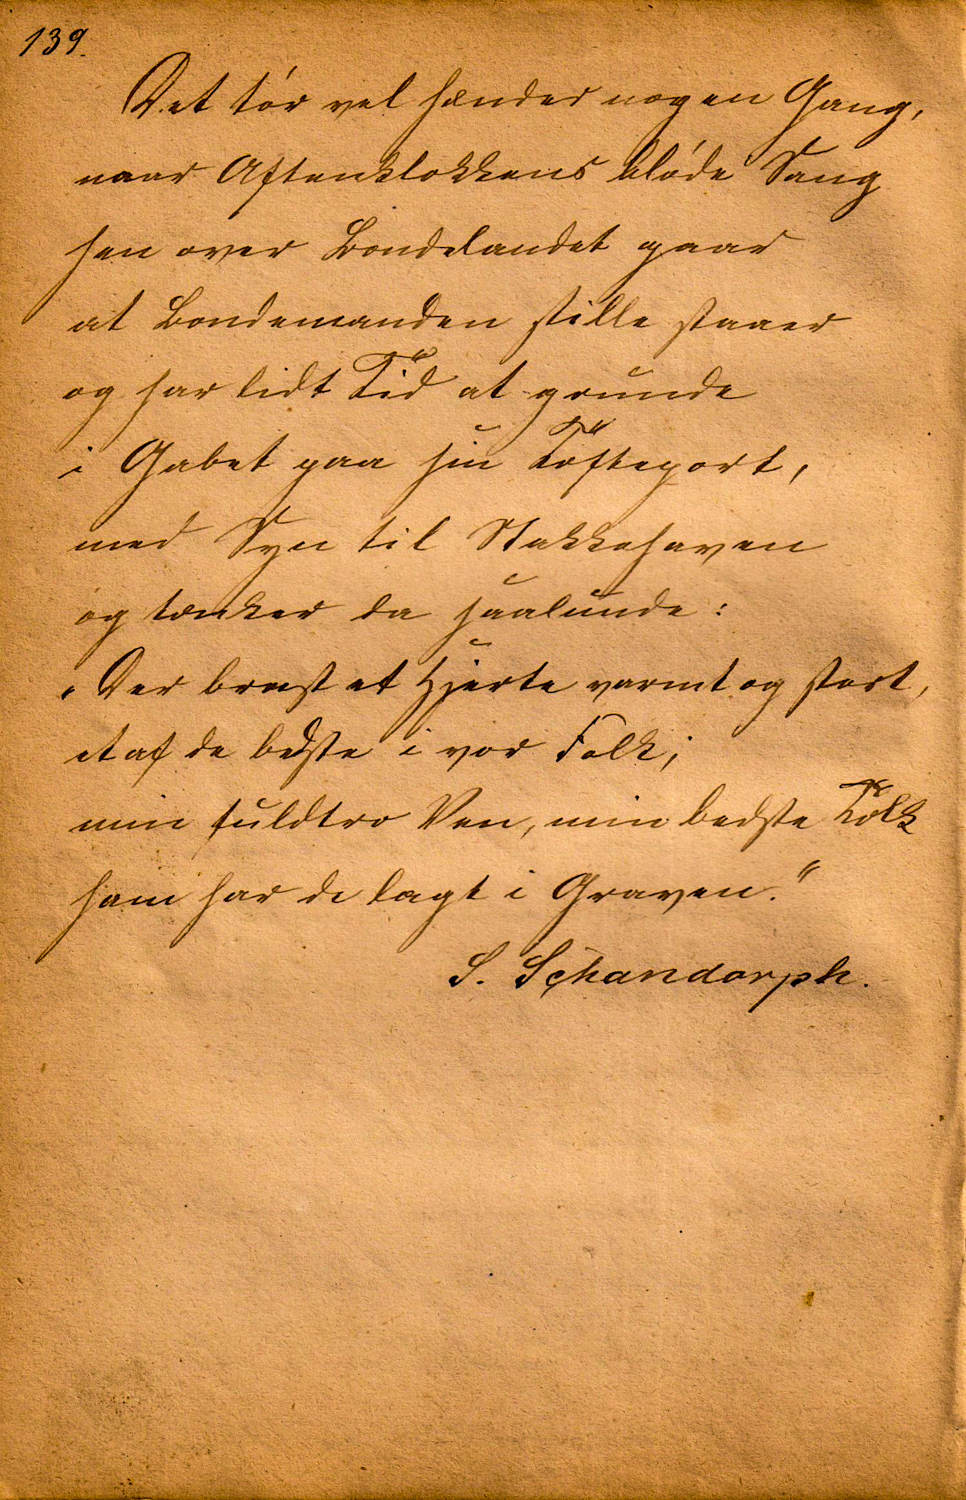 139.
Det tør vel hændes nogen Gang,
naar Aftenklokkens bløde Sang
hen over Bondelandet gaar
at Bondemanden stille staaer
og har lidt Tid at grunde
i Gabet paa sin Tofteport,
med Syn til Stakkehaven
og tænker da saalunde:
"Der brast et Hjerte varmt og stort,
et af de bedste i vor Folk;
min fuldtro Ven, min bedste Tolk
ham har de lagt i Graven."
S. Schandorph.